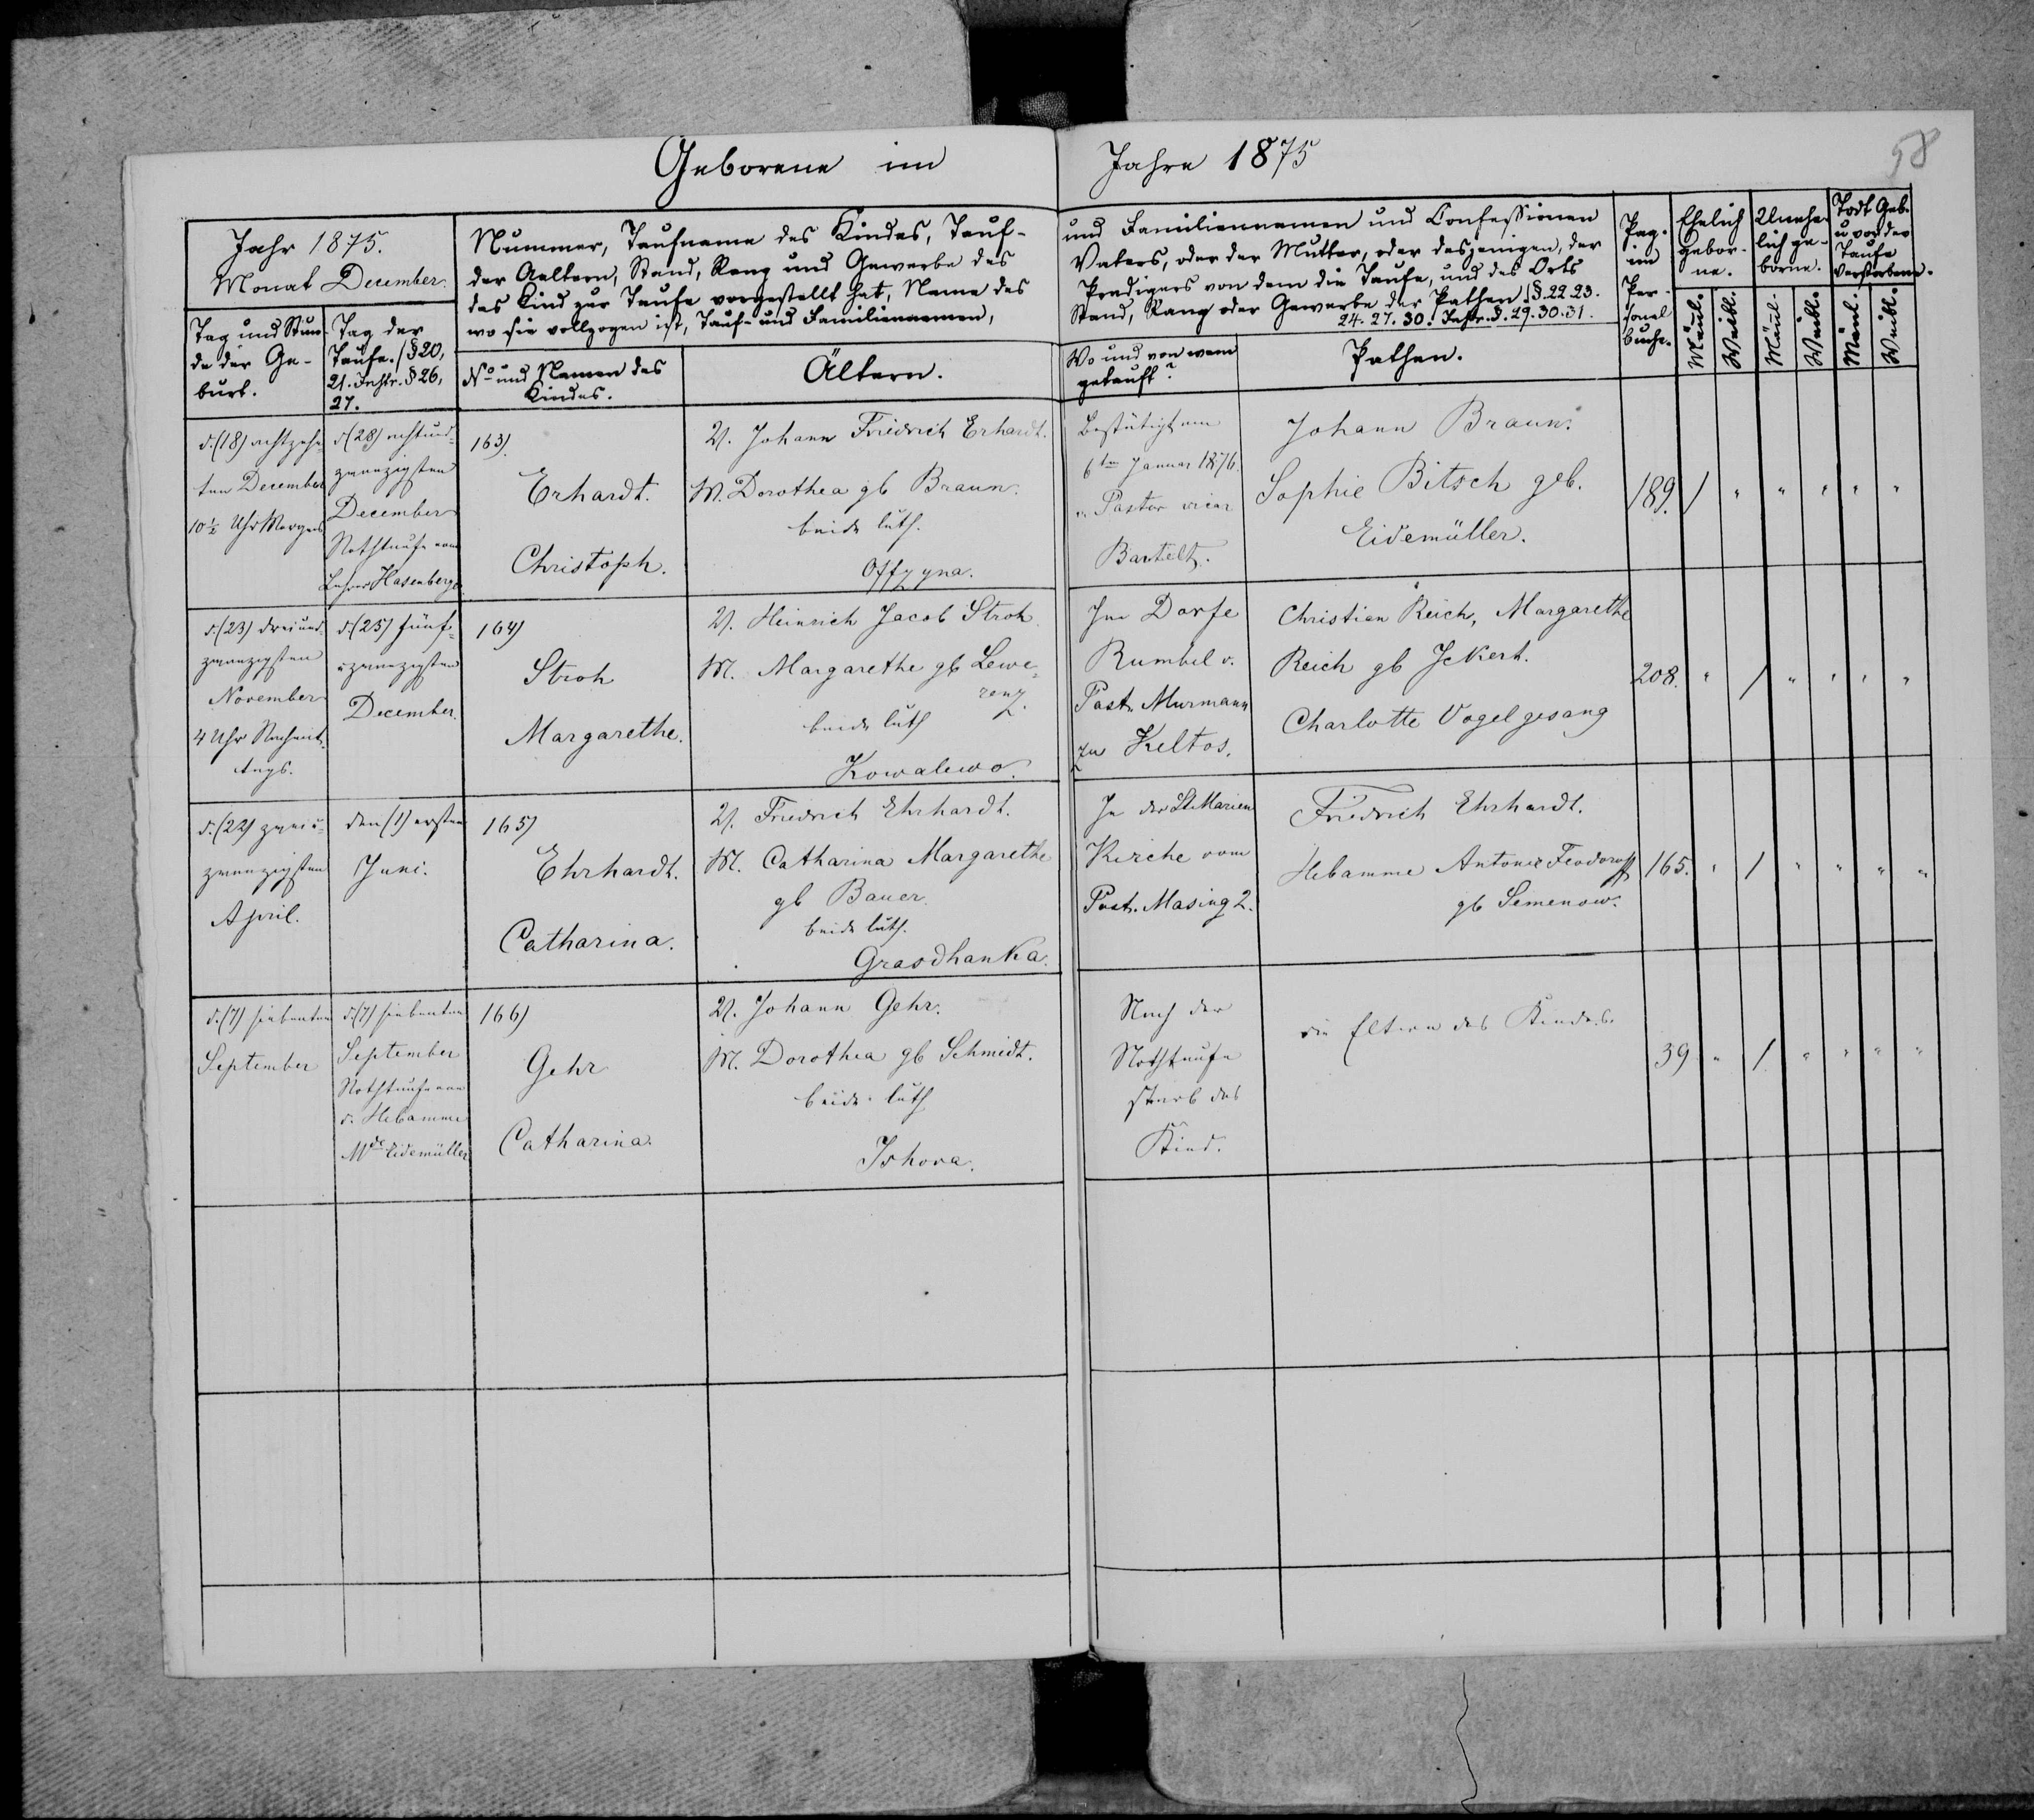 Geborene im Jahre 1875
58
Jahr 1875.
Monat December.
Nummer, Taufname des Kindes, Tauf-
der Aeltern, Stand, Rang und Gewerbe des
das Kind zur Taufe vorgestellt hat, Name des
wo sie vollzogen ist, Tauf- und Familiennamen,
und Familiennamen und Confessionen
Vaters, oder der Mutter, oder desjenigen, der
Predigers von dem die Taufe, und des Orts
Stand, Rang oder Gewerbe der Pathen. (§. 22 23.
24. 27. 30. Instr. §. 29. 30. 31.
Pag.
im
Per-
sonal
buche.
Ehelich
gebor-
ne.
Unehe-
lich ge-
borne.
Todt Geb.
u vor der
Taufe
Verstorbene.
Tag und Stun-
de der Ge-
burt.
Tag der
Taufe. (§ 20,
21. Instr. § 26,
27.
No und Namen des
Kindes.
Ältern.
Wo und von wem
getauft?
Pathen.
Mänl.
Weibl.
Mänl.
Weibl.
Mänl.
Weibl.
d. (18) achtzehn-
ten December
10½ Uhr Morgens
d. (28) achtund-
zwanzigsten
December
Nothtaufe vom
Lehrer Hasenberger
163).
Erhardt.
Christoph.
V. Johann Friedrich Erhardt.
M. Dorothea gb Braun.
beide luth.
Offzyna.
Bestätigt am
6ten Januar 1876.
v. Pastor vicar
Bartelt.
Johann Braun.
Sophie Bitsch geb.
Eidemüller.
189. / " " " " "
d. (23) dreiund-
zwanzigsten
November
4 Uhr Nachmit-
tags.
d. (25) fünf-
uzwanzigsten
December.
164)
Stroh
Margarethe.
V. Heinrich Jacob Stroh.
M. Margarethe gb Lewe-
renz.
beide luth
Kowalewo.
Im Dorfe
Rumbel v.
Past. Murmann
zu Keltos.
Christian Reich, Margarethe
Reich gb Ickert.
Charlotte Vogelgesang
208. " / " " " "
d. (22) zweiu-
zwanzigsten
April.
den (1) ersten
Juni.
165)
Ehrhardt.
Catharina.
V. Friedrich Ehrhardt.
M. Catharina Margarethe
gb Bauer.
beide luth.
Grasdhanka.
In der St. Marien
Kirche vom
Past. Masing 2.
Friedrich Ehrhardt.
Hebamme Antonie Feodoroff
gb Semenow.
165. " / " " " "
d. (7) siebenten
September
d. (7) siebenten
September
Nothtaufe von
d. Hebamme
Mde Eidemüller
166)
Gehr
Catharina.
V. Johann Gehr.
M. Dorothea gb Schmidt.
beide luth
Ishora.
Nach der
Nothtaufe
starb das
Kind.
die Eltern des Kindes.
39 " / " " " "